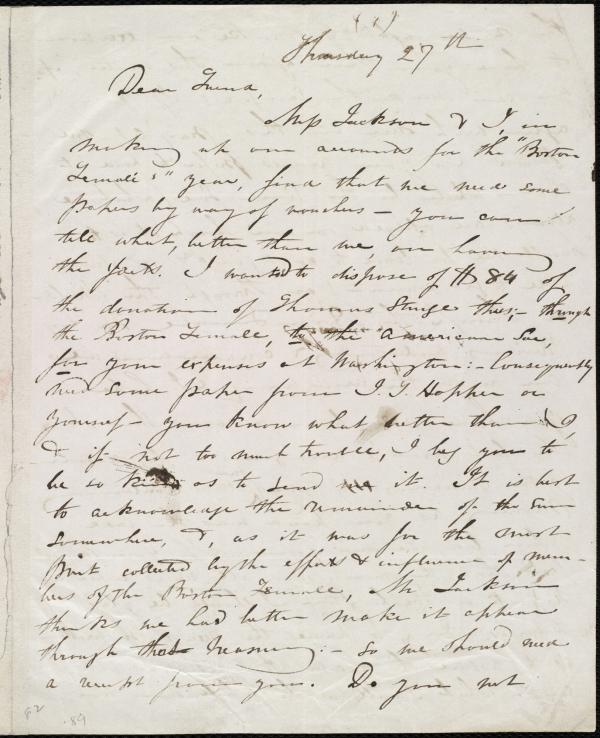 (1)
Thursday 27th
Dear Friend,
Mr Jackson & I, in
making up our accounts for the "Boston
Female's" year, find that we need some
papers by way of vouchers – you can
tell what, better than me, on having
the facts. I wanted to dispose of $ 84 of
the donation of Thomas Sturge thus; – through
the Boston Female, to the American Soc,
for your expenses at Washington: – Consequently
need some paper from I. T. Hopper or
yourself – you know what better than I,
& if not too much trouble, I beg you to
be so kind as to send it. It is best
to acknowledge the remainder of the sum
somewhere, &, as it was for the most
part collected by the efforts & influence of mem-
bers of the Boston Female, Mr Jackson
thinks we had better make it appear
through that treasury: – so we should need
a receipt from you. Do you not
82
.89